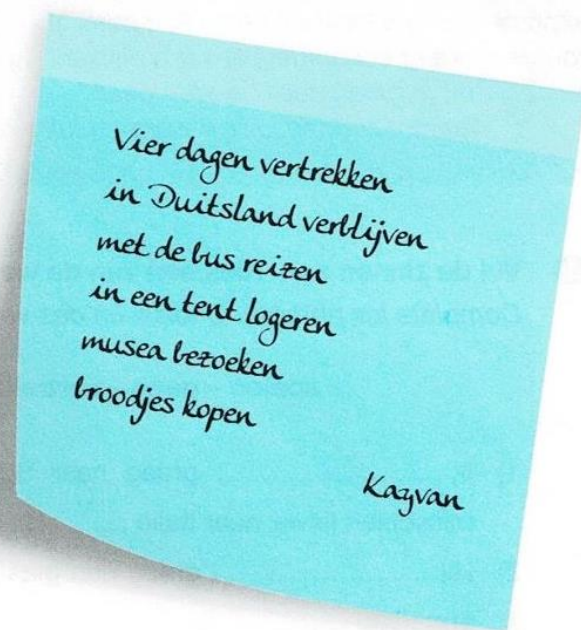 Vier dagen vertrekken
in Duitsland verblijven
met de bus reizen
in een tent logeren
musea bezoeken
broodjes kopen
Kayvan